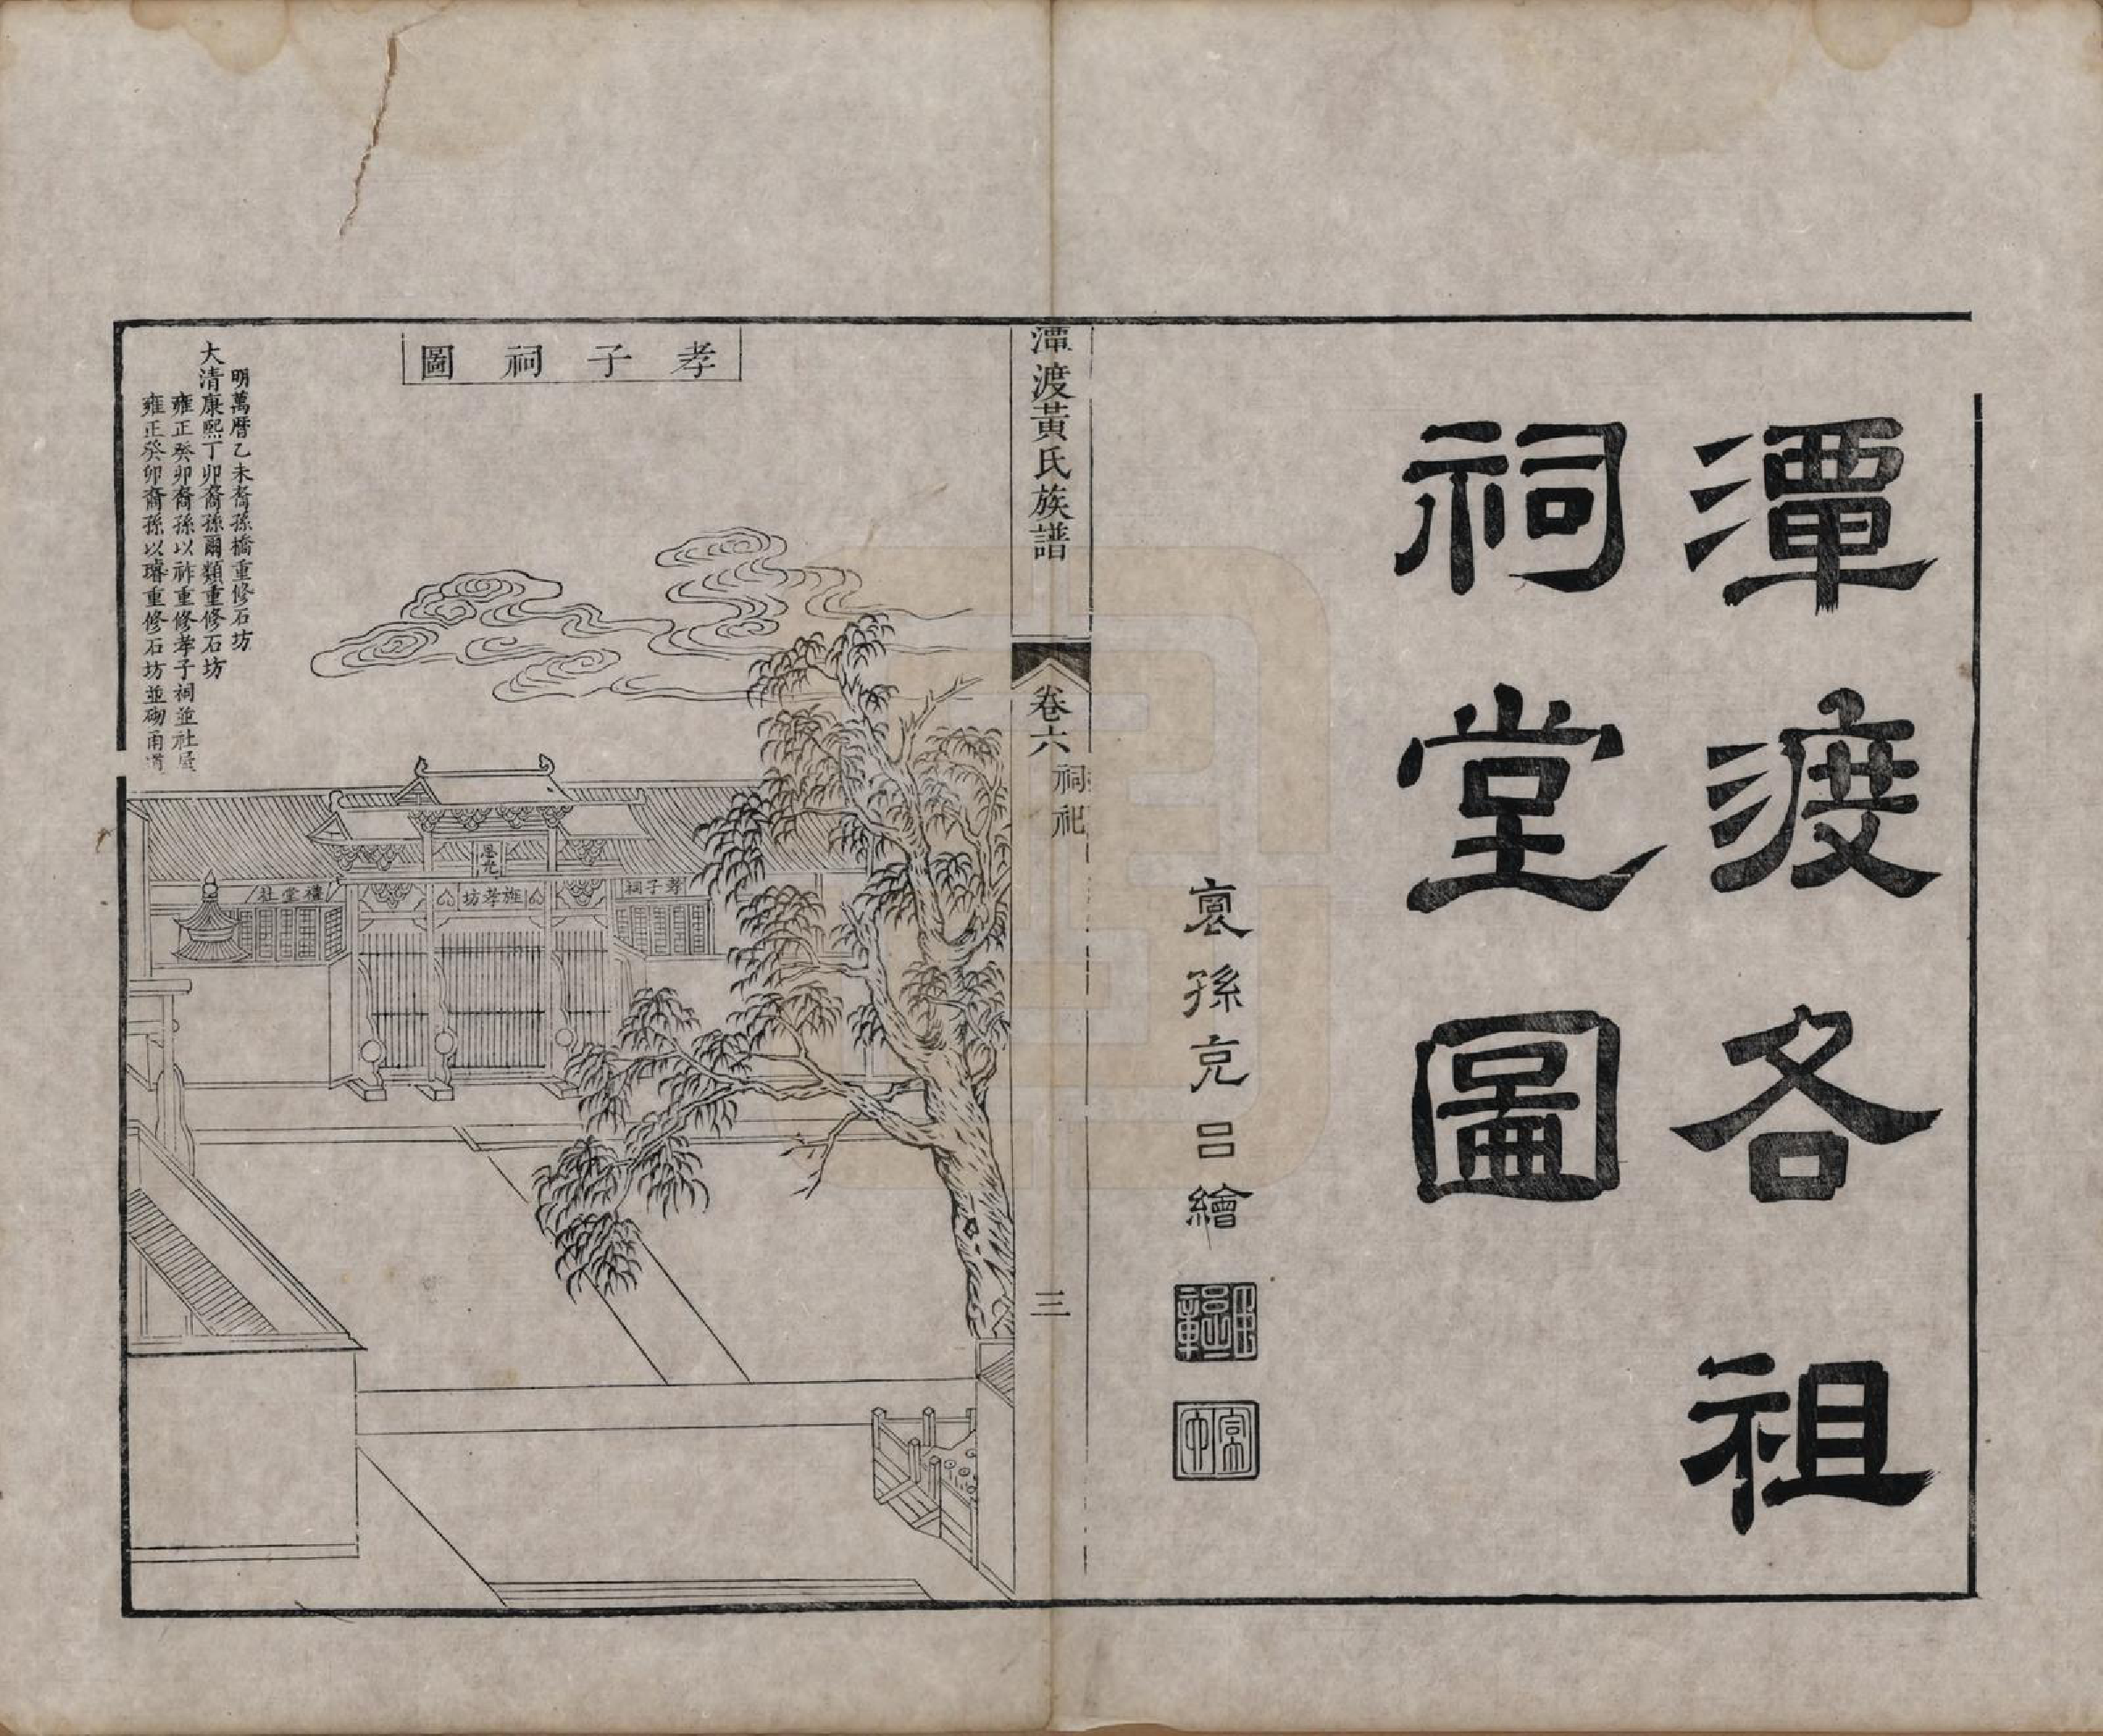 潭渡各祖
祠堂圖
裔孫克呂繪
潭渡黃氏族譜
卷六
祠祀
三
孝子祠圖
明萬曆乙未裔孫橋重修石坊
大清康熙丁卯裔孫爾類重修石坊
雍正癸卯裔孫以祚重修孝子祠並社屋
雍正癸卯裔孫以璿重修石坊並砌甬道
孝子祠
旌孝坊
社堂禮